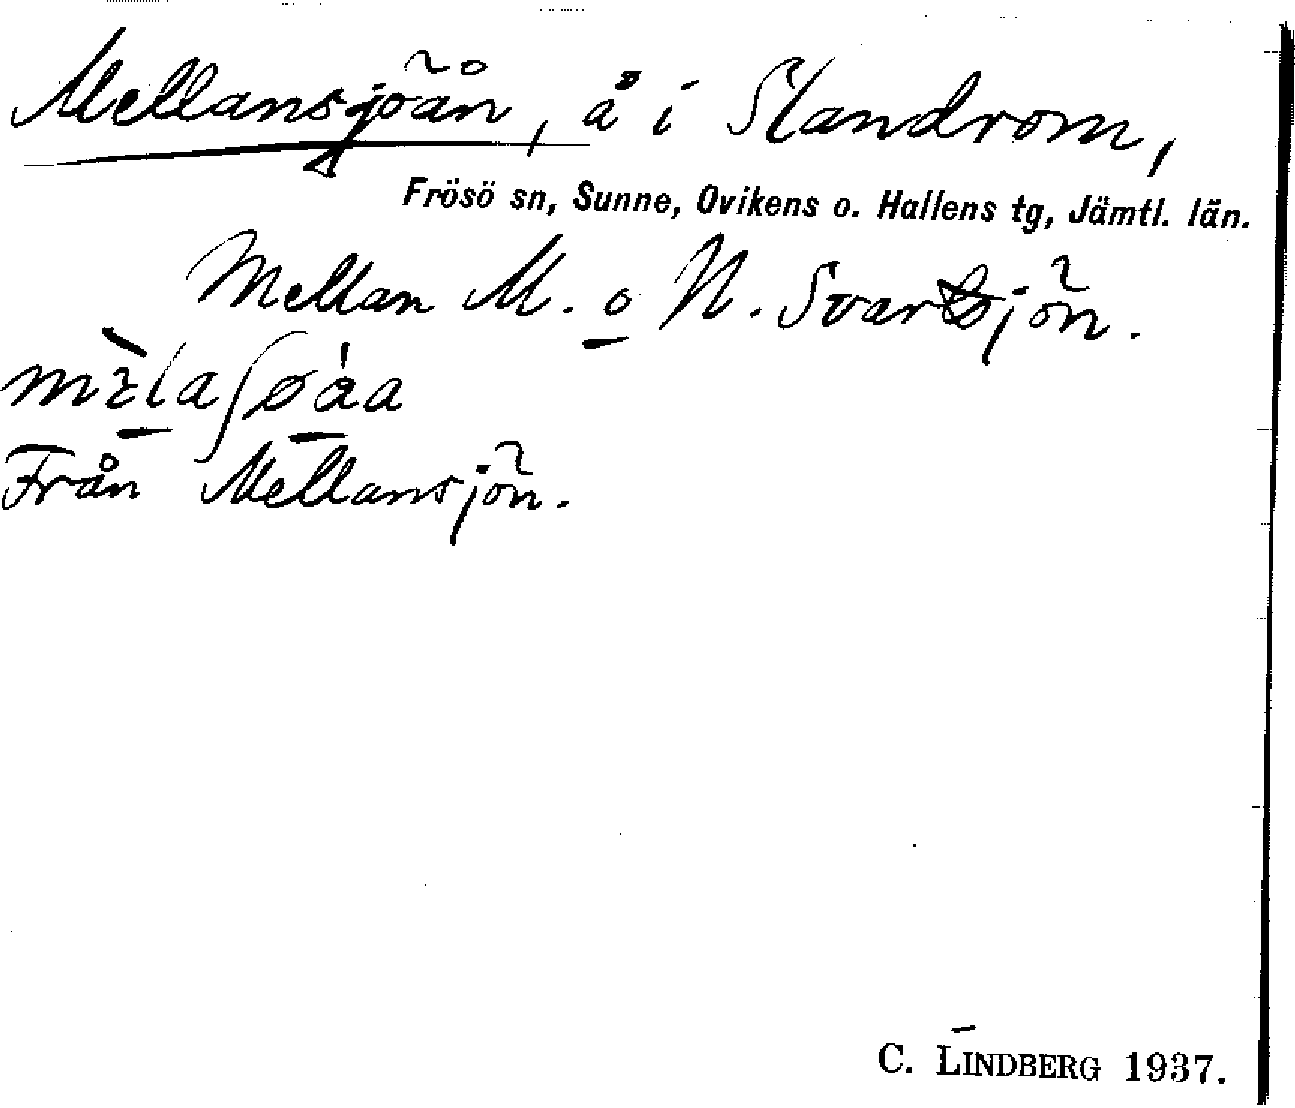 Mellansjöån, å i Slandrom,
Frösö sn, Sunne, Ovikens o. Hallens tg, Jämtl. län.
Mellan M. o N. Svartsjön.
Från Mellansjön.
C. LINDBERG 1937.